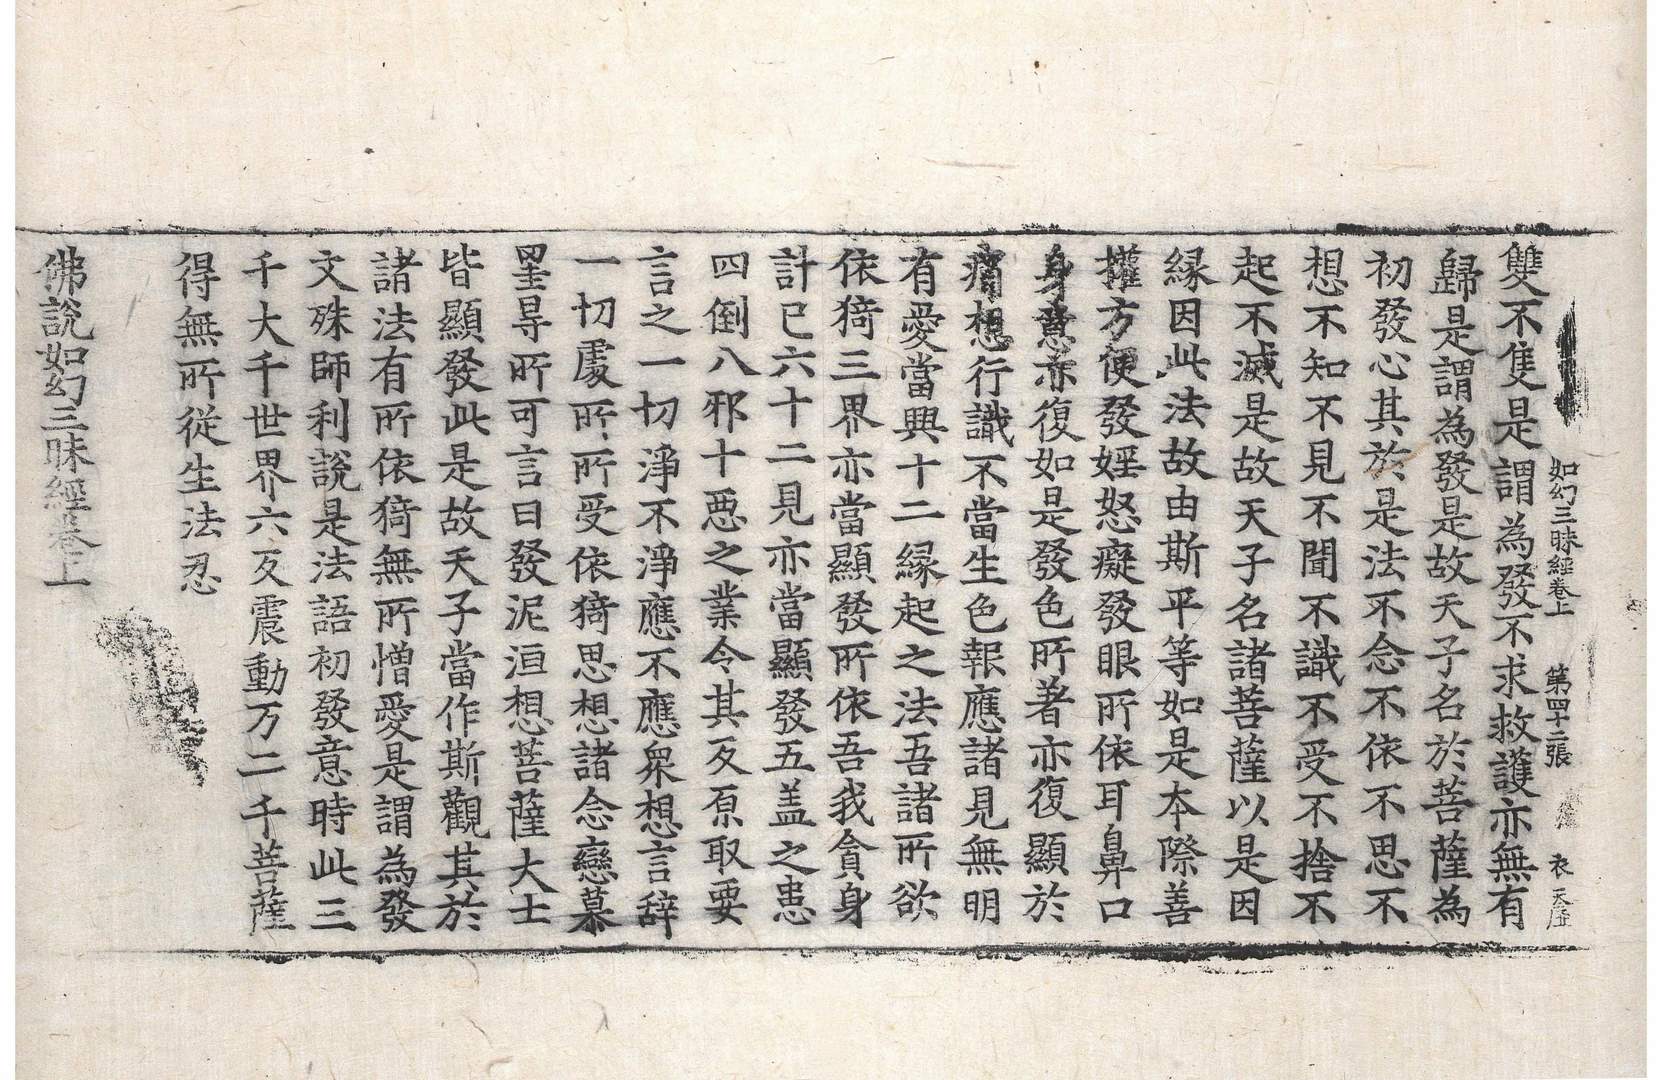 如幻三昧經卷上 第四十二張 衣 天历
雙不隻是謂為發不求救護亦無有
歸是謂為發是故天子名於菩薩為
初發心其於是法不念不依不思不
想不知不見不聞不識不受不捨不
起不滅是故天子名諸菩薩以是因
緣因此法故由斯平等如是本際善
攉方便發婬怒癡發眼所依耳鼻口
身意亦復如是發色所著亦復顯於
痛想行識不當生色報應諸見無明
有愛當興十二緣起之法吾諸所欲
依猗三界亦當顯發所依吾我貪身
計已六十二見亦當顯發五盖之患
四倒八邪十惡之業令其反原取要
言之一切淨不淨應不應衆想言辭
一切處所所受依猗思想諸念戀慕
罣㝵所可言曰發泥洹想菩薩大士
皆顯發此是故天子當作斯觀其於
諸法有所依猗無所憎愛是謂為發
文殊師利說是法語初發意時此三
千大千世界六反震動万二千菩薩
得無所從生法忍
佛說如幻三昧經卷上